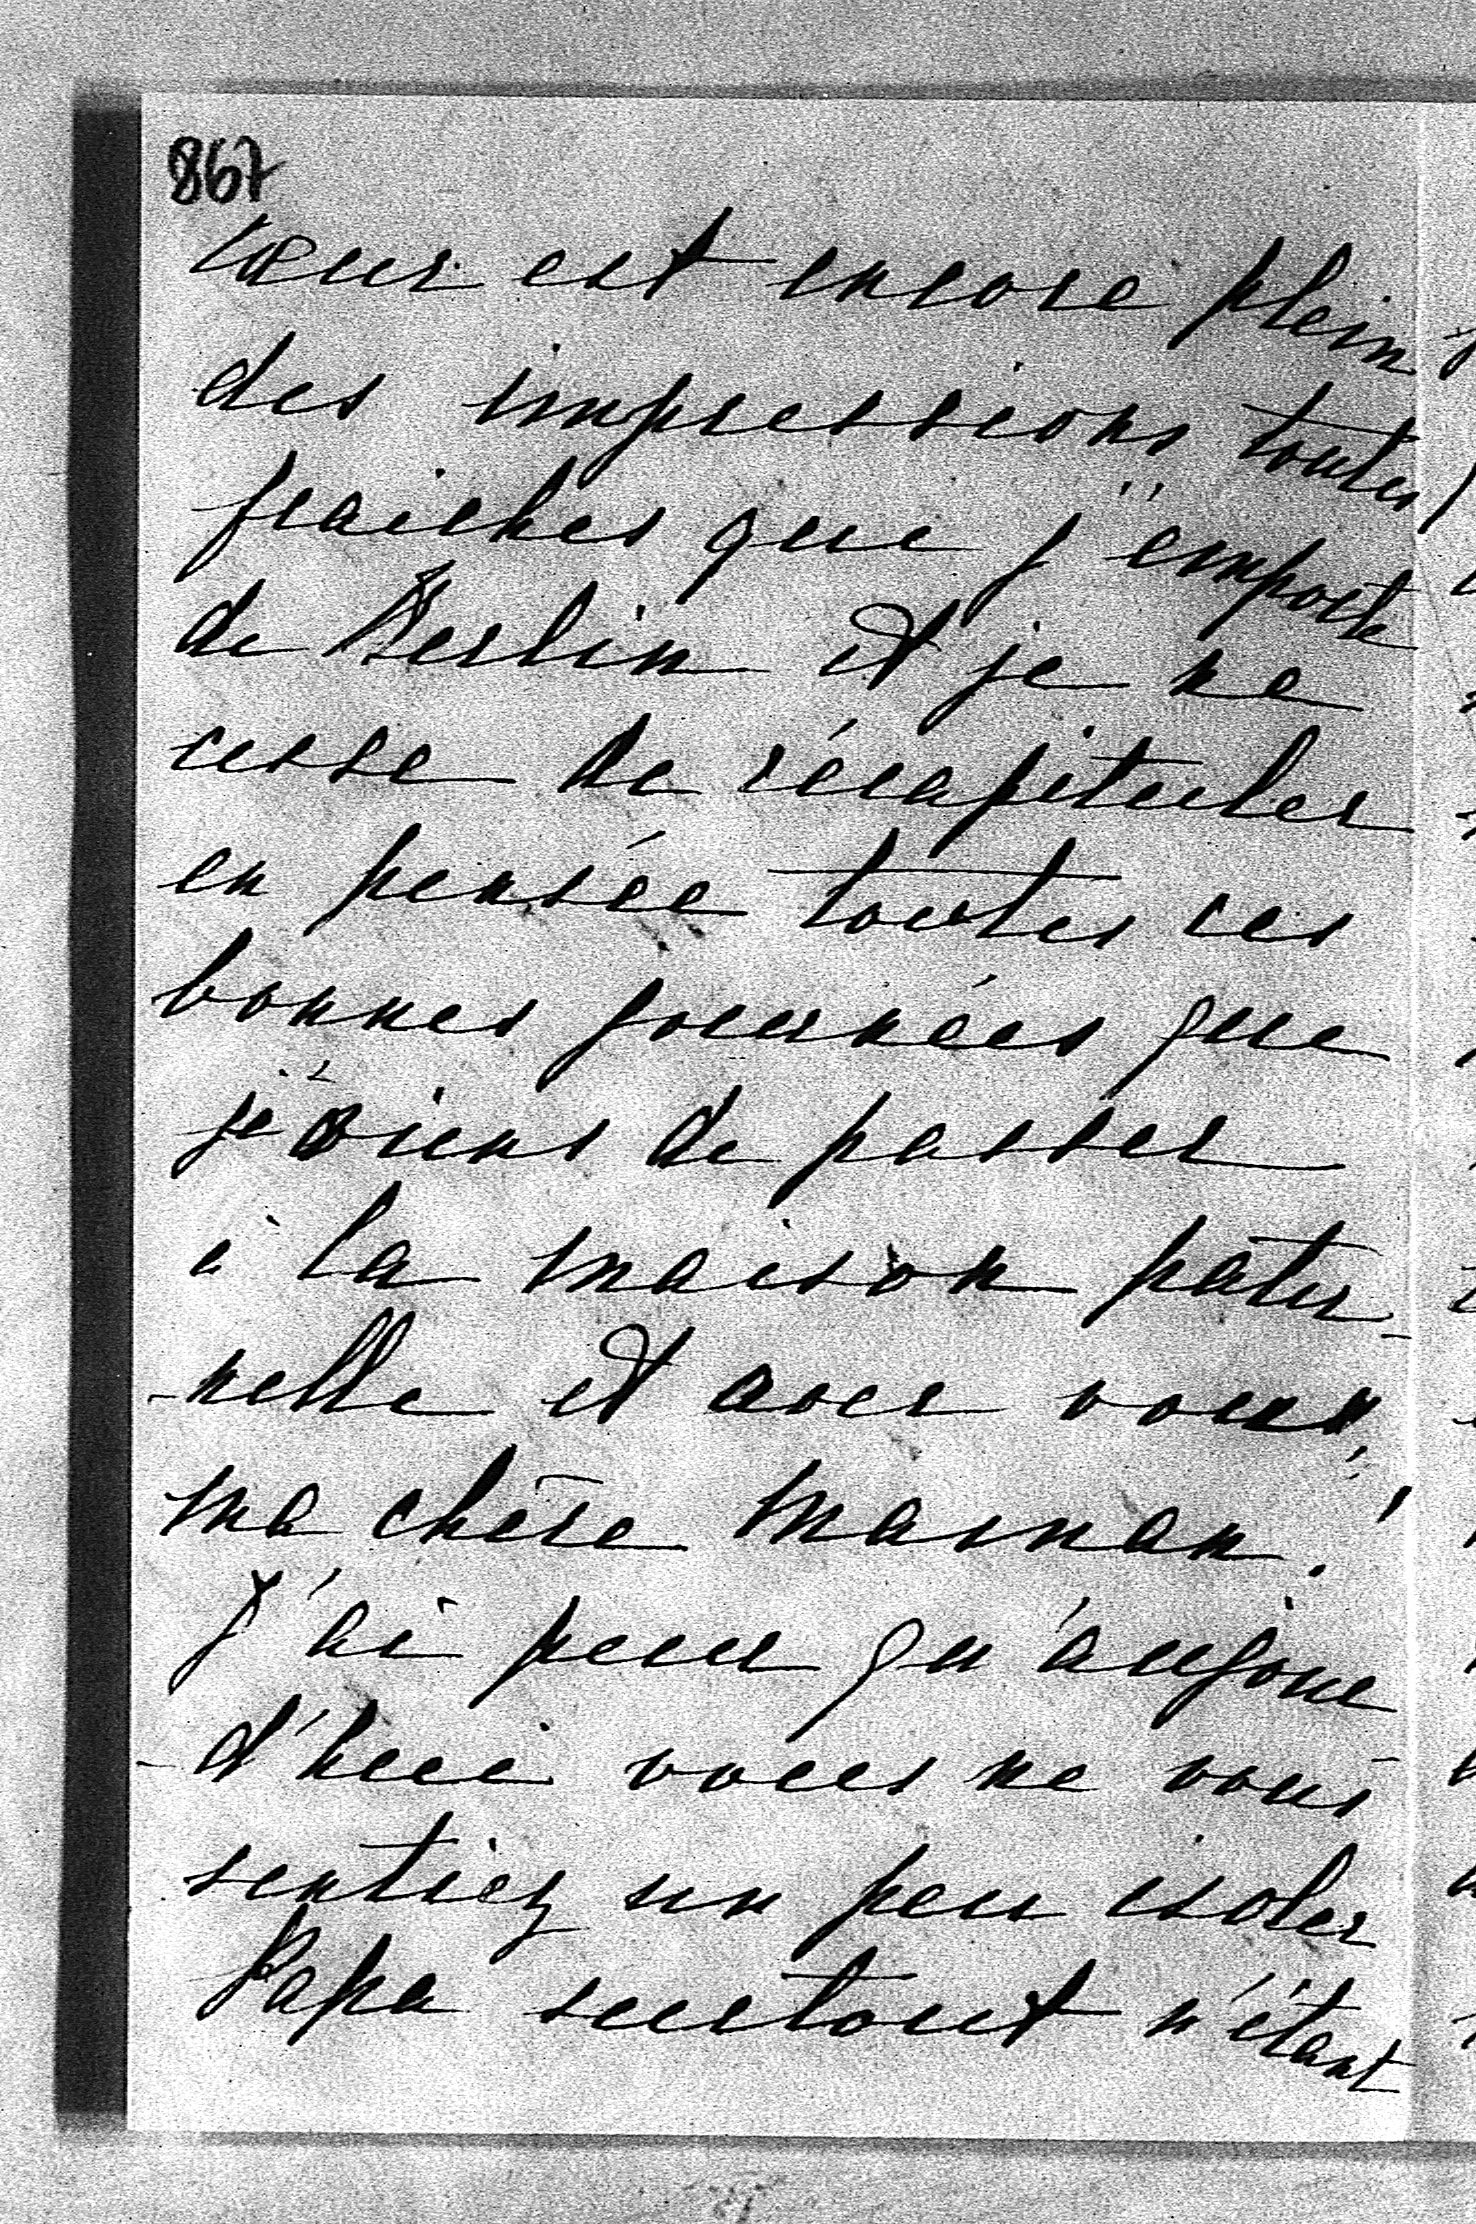 867
cœur est encore plein
des impressions toutes
fraiches que j'emporte
de Berlin et je ne
cesse de récapituler
en pensée toutes ces
bonnes journées que
je viens de passer
à la maison pater-
-nelle et avec vous,
ma chère Maman!
J'ai peur qu'aujour
-d'hui vous ne vous
sentiez un peu isoler
Papa surtout n'étant